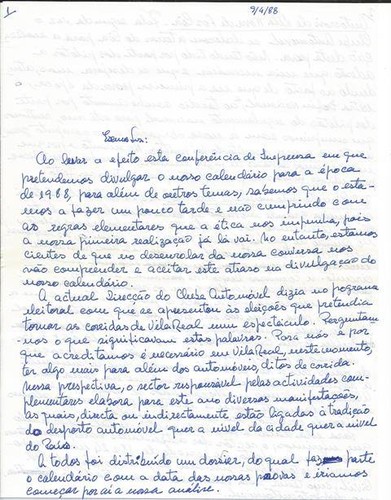 1
9/4/88
Exmos Srs:
Ao levar a efeito esta conferência de Imprensa em que
pretendemos divulgar o nosso calendário para a época
de 1988, para além de outros temas, sabemos que o esta-
mos a fazer um pouco tarde e não cumprindo com
as regras elementares que a ética nos impunha, pois
a nossa primeira realização já lá vai. No entanto, estamos
cientes de que no desenrolar da nossa conversa nos
vão compreender e aceitar este atraso na divulgação do
nosso calendário.
A actual Direcção do Clube Automóvel dizia no programa
eleitoral com que se apresentou às eleições que pretendia
tornar as corridas de Vila Real um espectáculo. Perguntam-
nos o que significavam estas palavras. Para nós e por
que acreditamos é necessário em Vila Real, neste momento,
ter algo mais para além dos automóveis, ditos de corrida.
Nessa prespectiva, o sector responsável pelas actividades com-
plementares elabora para este ano diversas manifestações,
as quais, directa ou indirectamente estão ligadas à tradição
do desporto automóvel quer a nivel da cidade quer a nivel
do País.
A todos foi distribuido um dossier, do qual faz parte
o calendário com a data das nossas provas e iriamos
começar por aí a nossa análise.